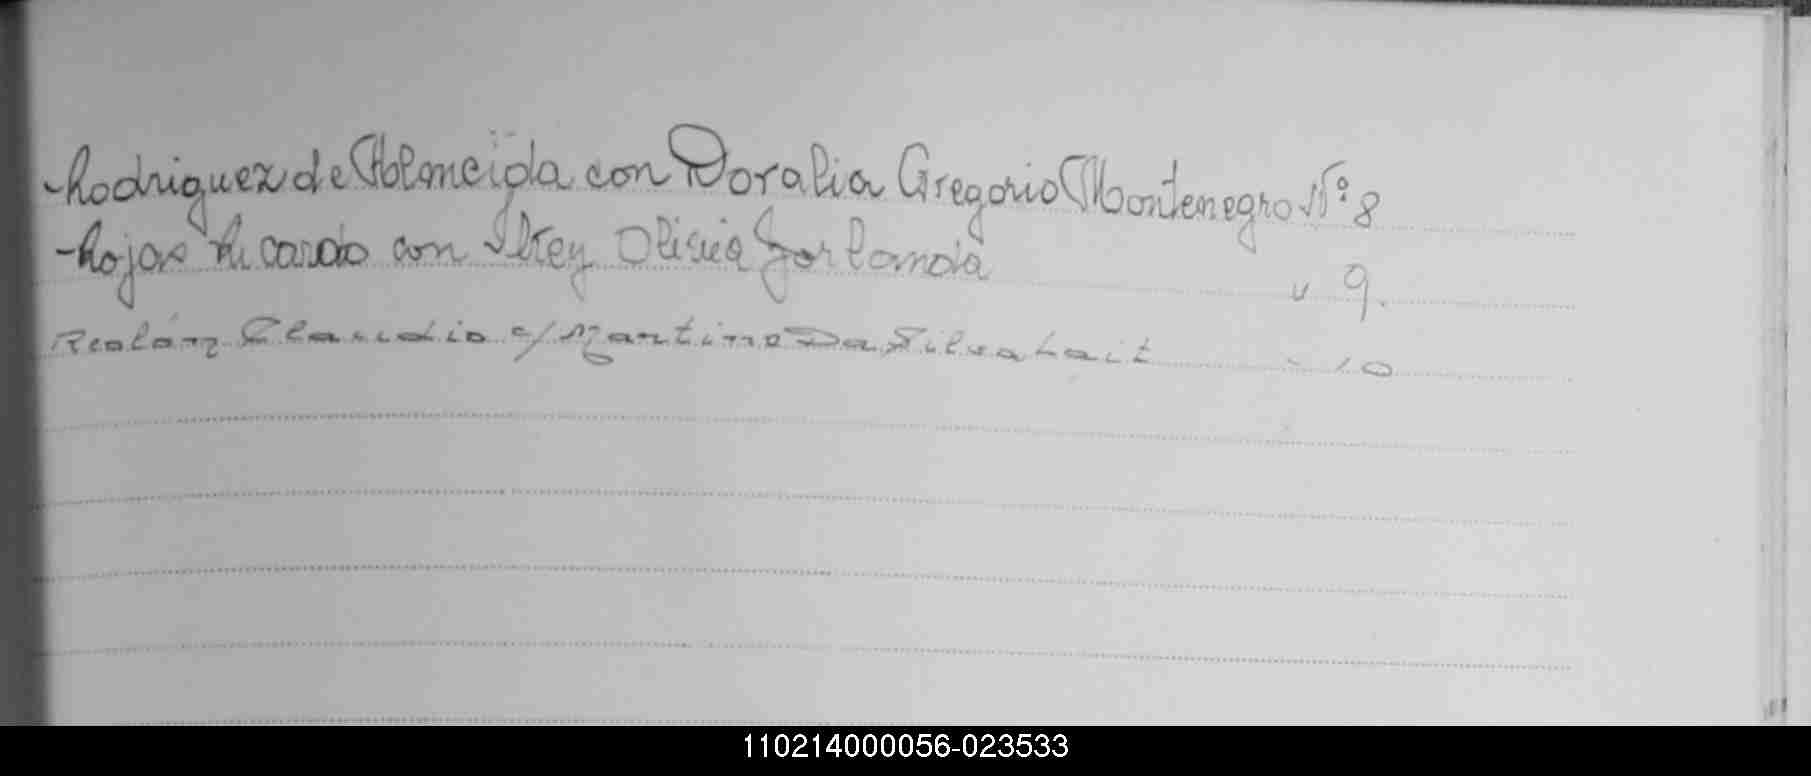 -Rodriguez de Almeida con Doralia Gregorio Montenegro Nº 8
-Rojas Ricardo con Olivia Garlanda " 9.
Claudio c/ Martina Da Silva " 10
110214000056-023533